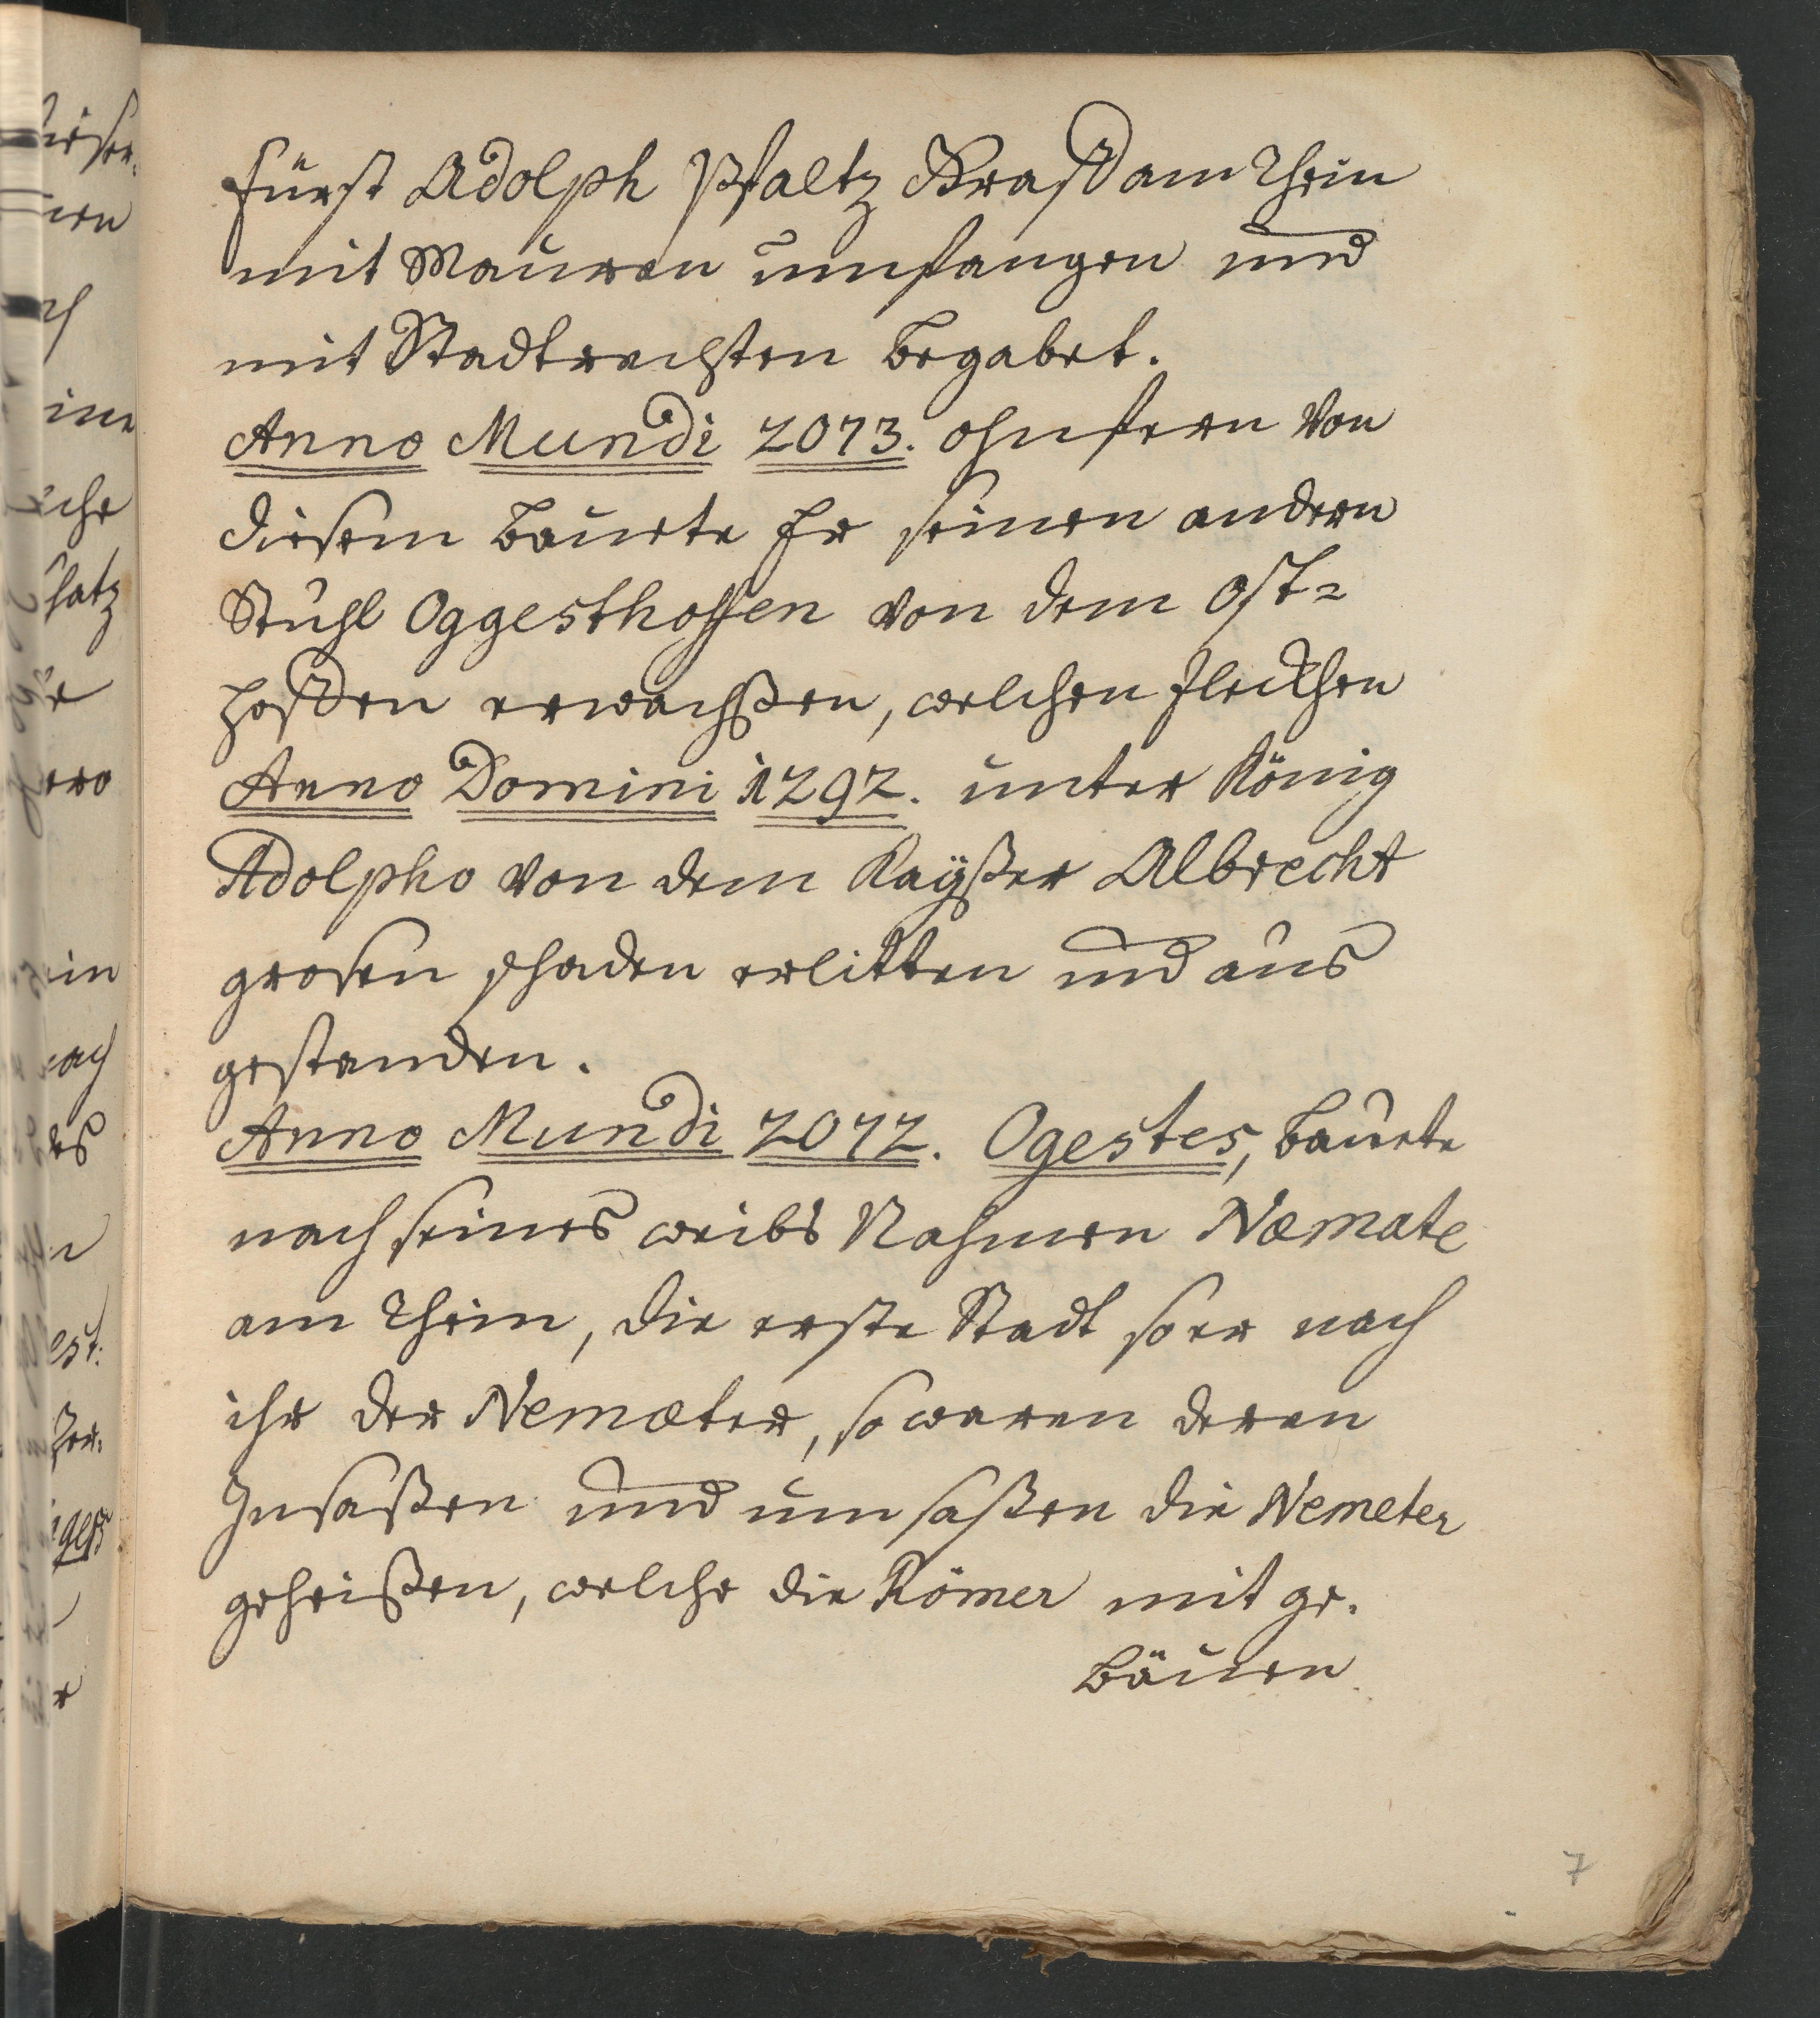 Fürst Adolph Pfaltz Graff am Rhein
mit Mauren umfangen und
mit Stadtrechten begabet.
Anno Mundi 2073. ohnfern von
diesem bauete Er seinen andern
Stuhl Oggesthoffen von dem Ost-
hoffen erwachßen, welchen Fleckhen
Anno Domini 1292. unter König
Adolpho von dem Kayßer Albrecht
grosen schaden erlitten und aus
gestanden.
Anno Mundi 2072. Ogestes, bauete
nach seines weibs Nahmen Næmate
am Rhein, die erste Stadt so er nach
ihr der Nemæter, so waren deren
Insaßen und umsaßen die Nemeter
geheißen, welche die Römer mit ge.
bäuen
7